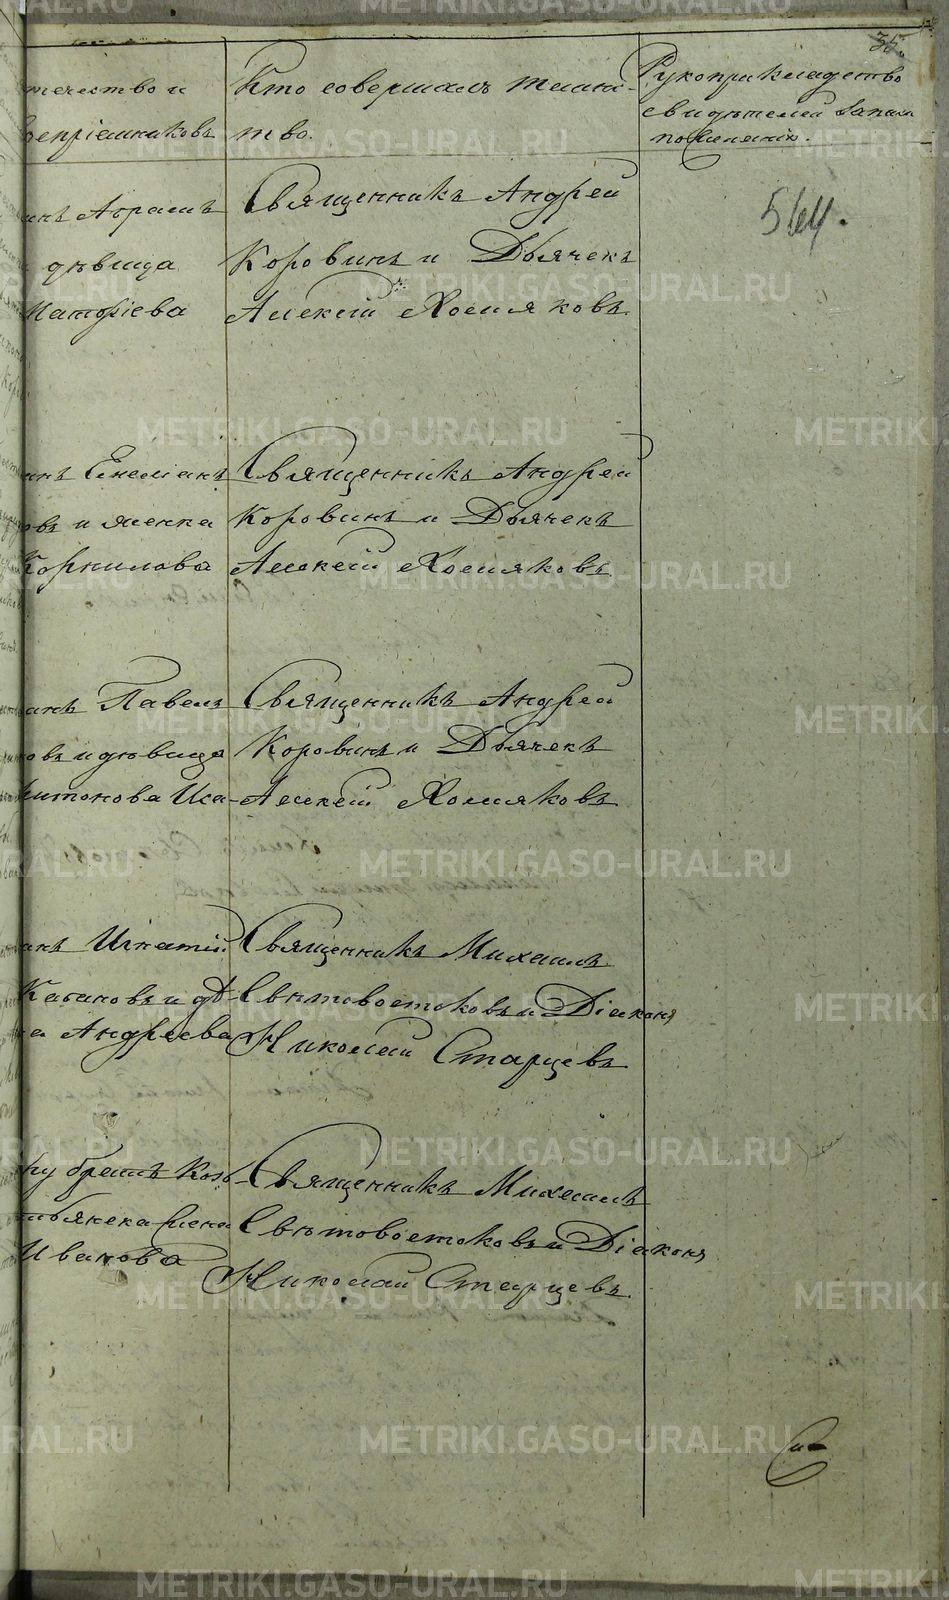 35.
течество и
воспріемниковъ
Кто совершалъ таинс-
тво.
Рукоприкладство
свидѣтелей записи
по желанію.
564.
инъ Абрамъ
дѣвица
Матфіева
Священникъ Андрей
Коровинъ и Дьячекъ
Алексій Хомяковъ
инъ Емеліанъ
овъ и женка
Корнилова
Священникъ Андрей
Коровинъ и Дьячекъ
Алексій Хомяковъ
инъ Павелъ
овъ и дѣвица
Антонова Иса-
Священникъ Андрей
Коровинъ и Дьячекъ
Алексій Хомяковъ
инъ Игнатій
Кабановъ и дѣ-
а Андреева
Священникъ Михаилъ
Свѣтовостоковъ и Діаконъ
Николай Старцевъ
Иванова
Священникъ Михаилъ
Свѣтовостоковъ и Діаконъ
Николай Старцевъ
METRIKI.GASO-URAL.RU